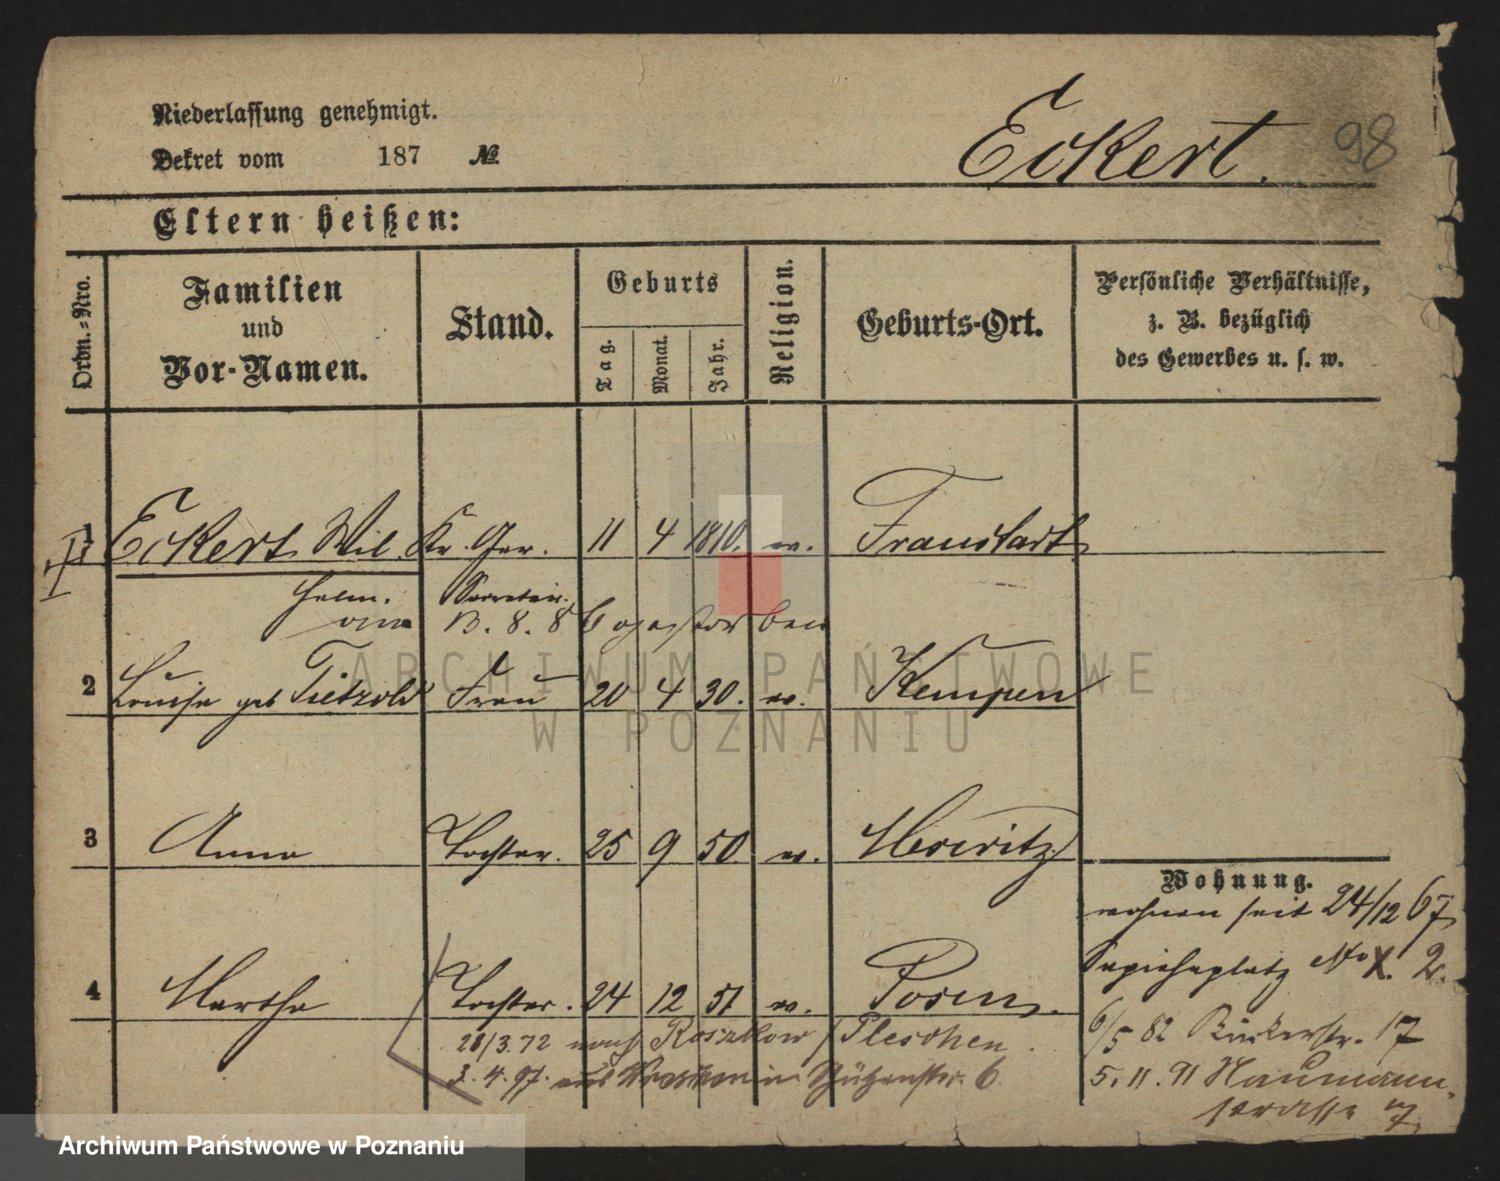 Niederlassung genehmigt.
Dekret vom 187 №.
Eckert. 98
Eltern heißen:
Ordn.-Nro. Familien und Vor-Namen. Stand. Geburts Tag. Monat. Jahr. Religion. Geburts-Ort. Persönliche Verhältnisse, z. B. bezüglich des Gewerbes u. s. w.
1 Eckert Wil Kr. Ger. 11 4 1810. ev. Fraustadt
helm. Secretair.
2 Louise geb Tietzold Frau 20 4 30. ev. Kempen
3 Anna Tochter. 25 9 50 ev.
4 Martha Tochter. 24 12 51 ev. Posen.
28/3.72 nach Roszkow / Pleschen.
3.4.97. aus Wreschen in Schützenstr. 6.
Wohnung.
wohnen seit 24/12 67
Sapiehaplatz No X. 2.
6/5 82 Bäckerstr. 17
5.11.91 Naumann
strasse 7.
ARCHIWUM PAŃSTWOWE
W POZNANIU
Archiwum Państwowe w Poznaniu